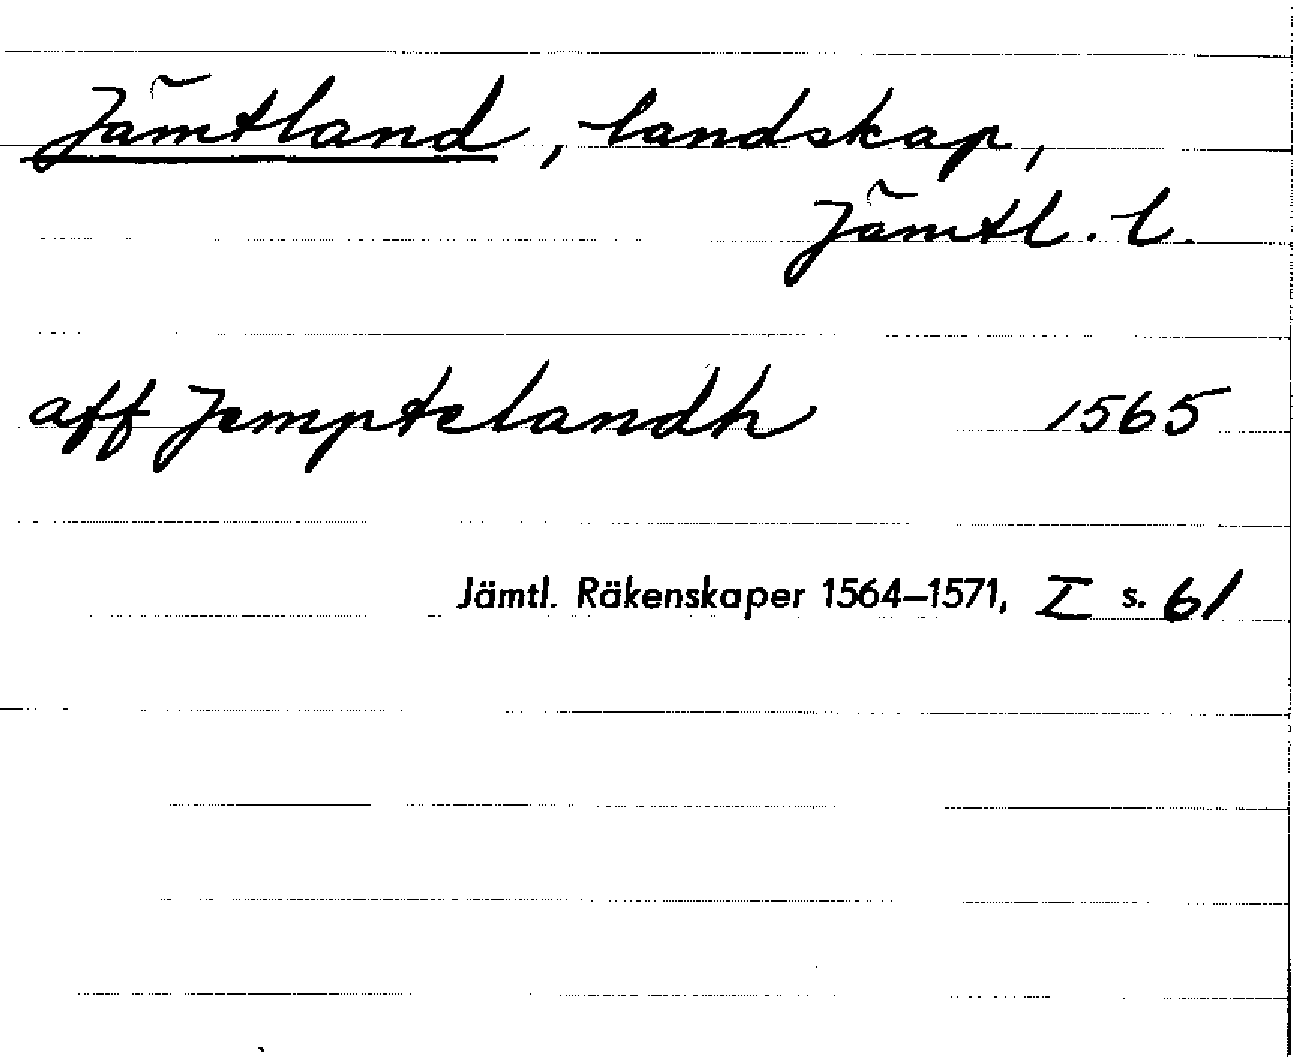 Jämtland, landskap,
Jämtl. l.
aff Jemptelandh 1565
Jämtl. Räkenskaper 1564–1571, I s. 61